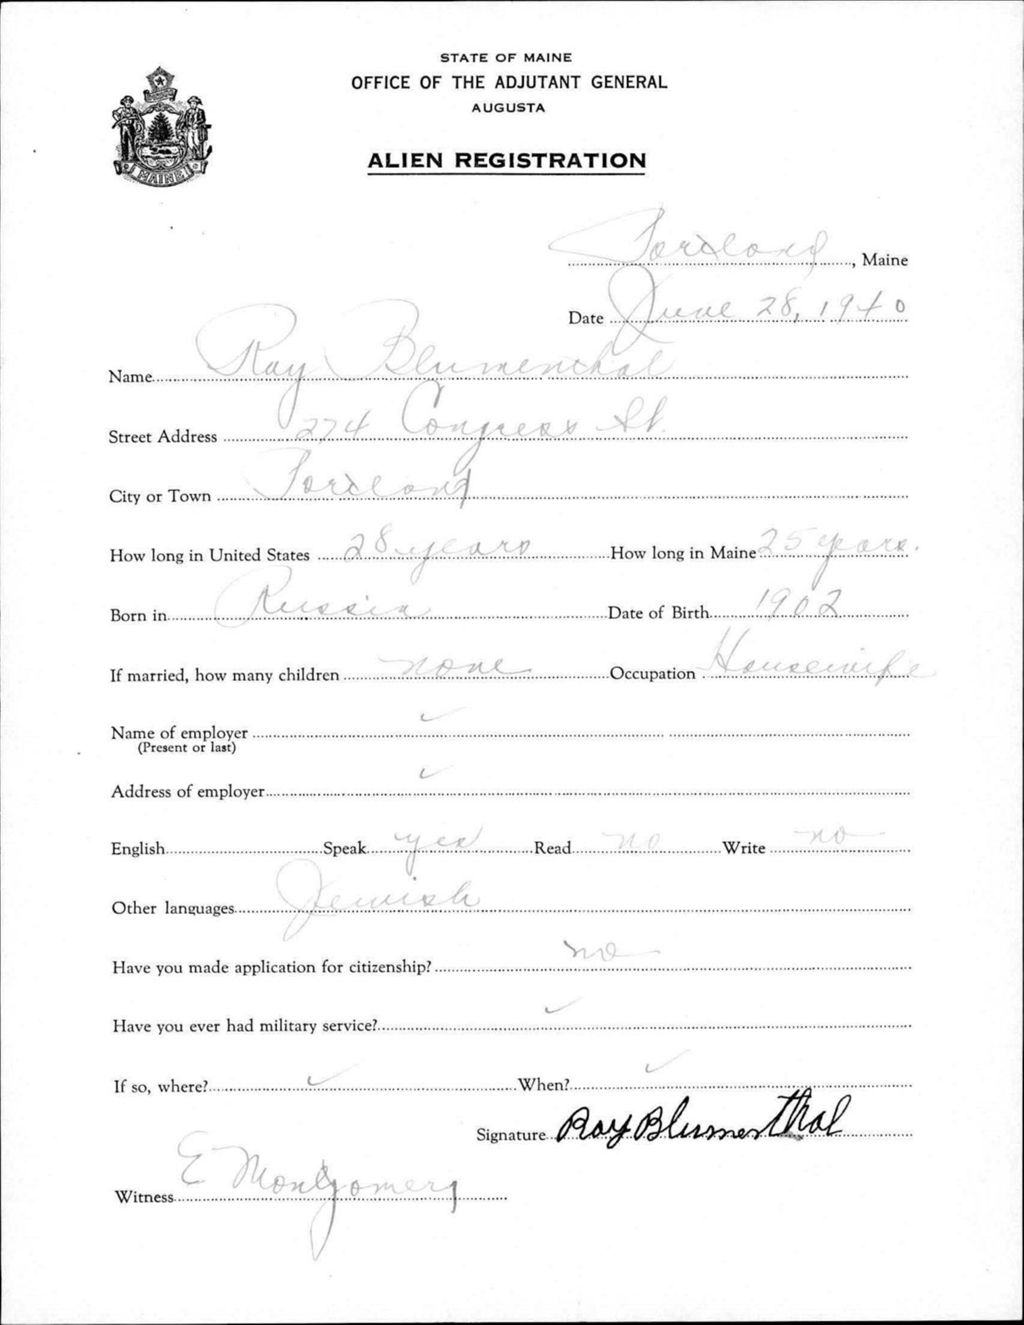 STATE OF MAINE
OFFICE OF THE ADJUTANT GENERAL
AUGUSTA
ALIEN REGISTRATION
MAINE
Portland, Maine
Date June 28, 1940
Name Ray Blumenthal
Street Address 274 Congress St.
City or Town Portland
How long in United States 28 years How long in Maine 25 years.
Born in Russia Date of Birth 1902
If married, how many children none Occupation Housewife
Name of employer ✓
(Present or last)
Address of employer ✓
English Speak yes Read no Write no
Other languages Jewish
Have you made application for citizenship? no
Have you ever had military service? ✓
If so, where? ✓ When? ✓
Signature Ray Blumenthal
Witness E Montgomery